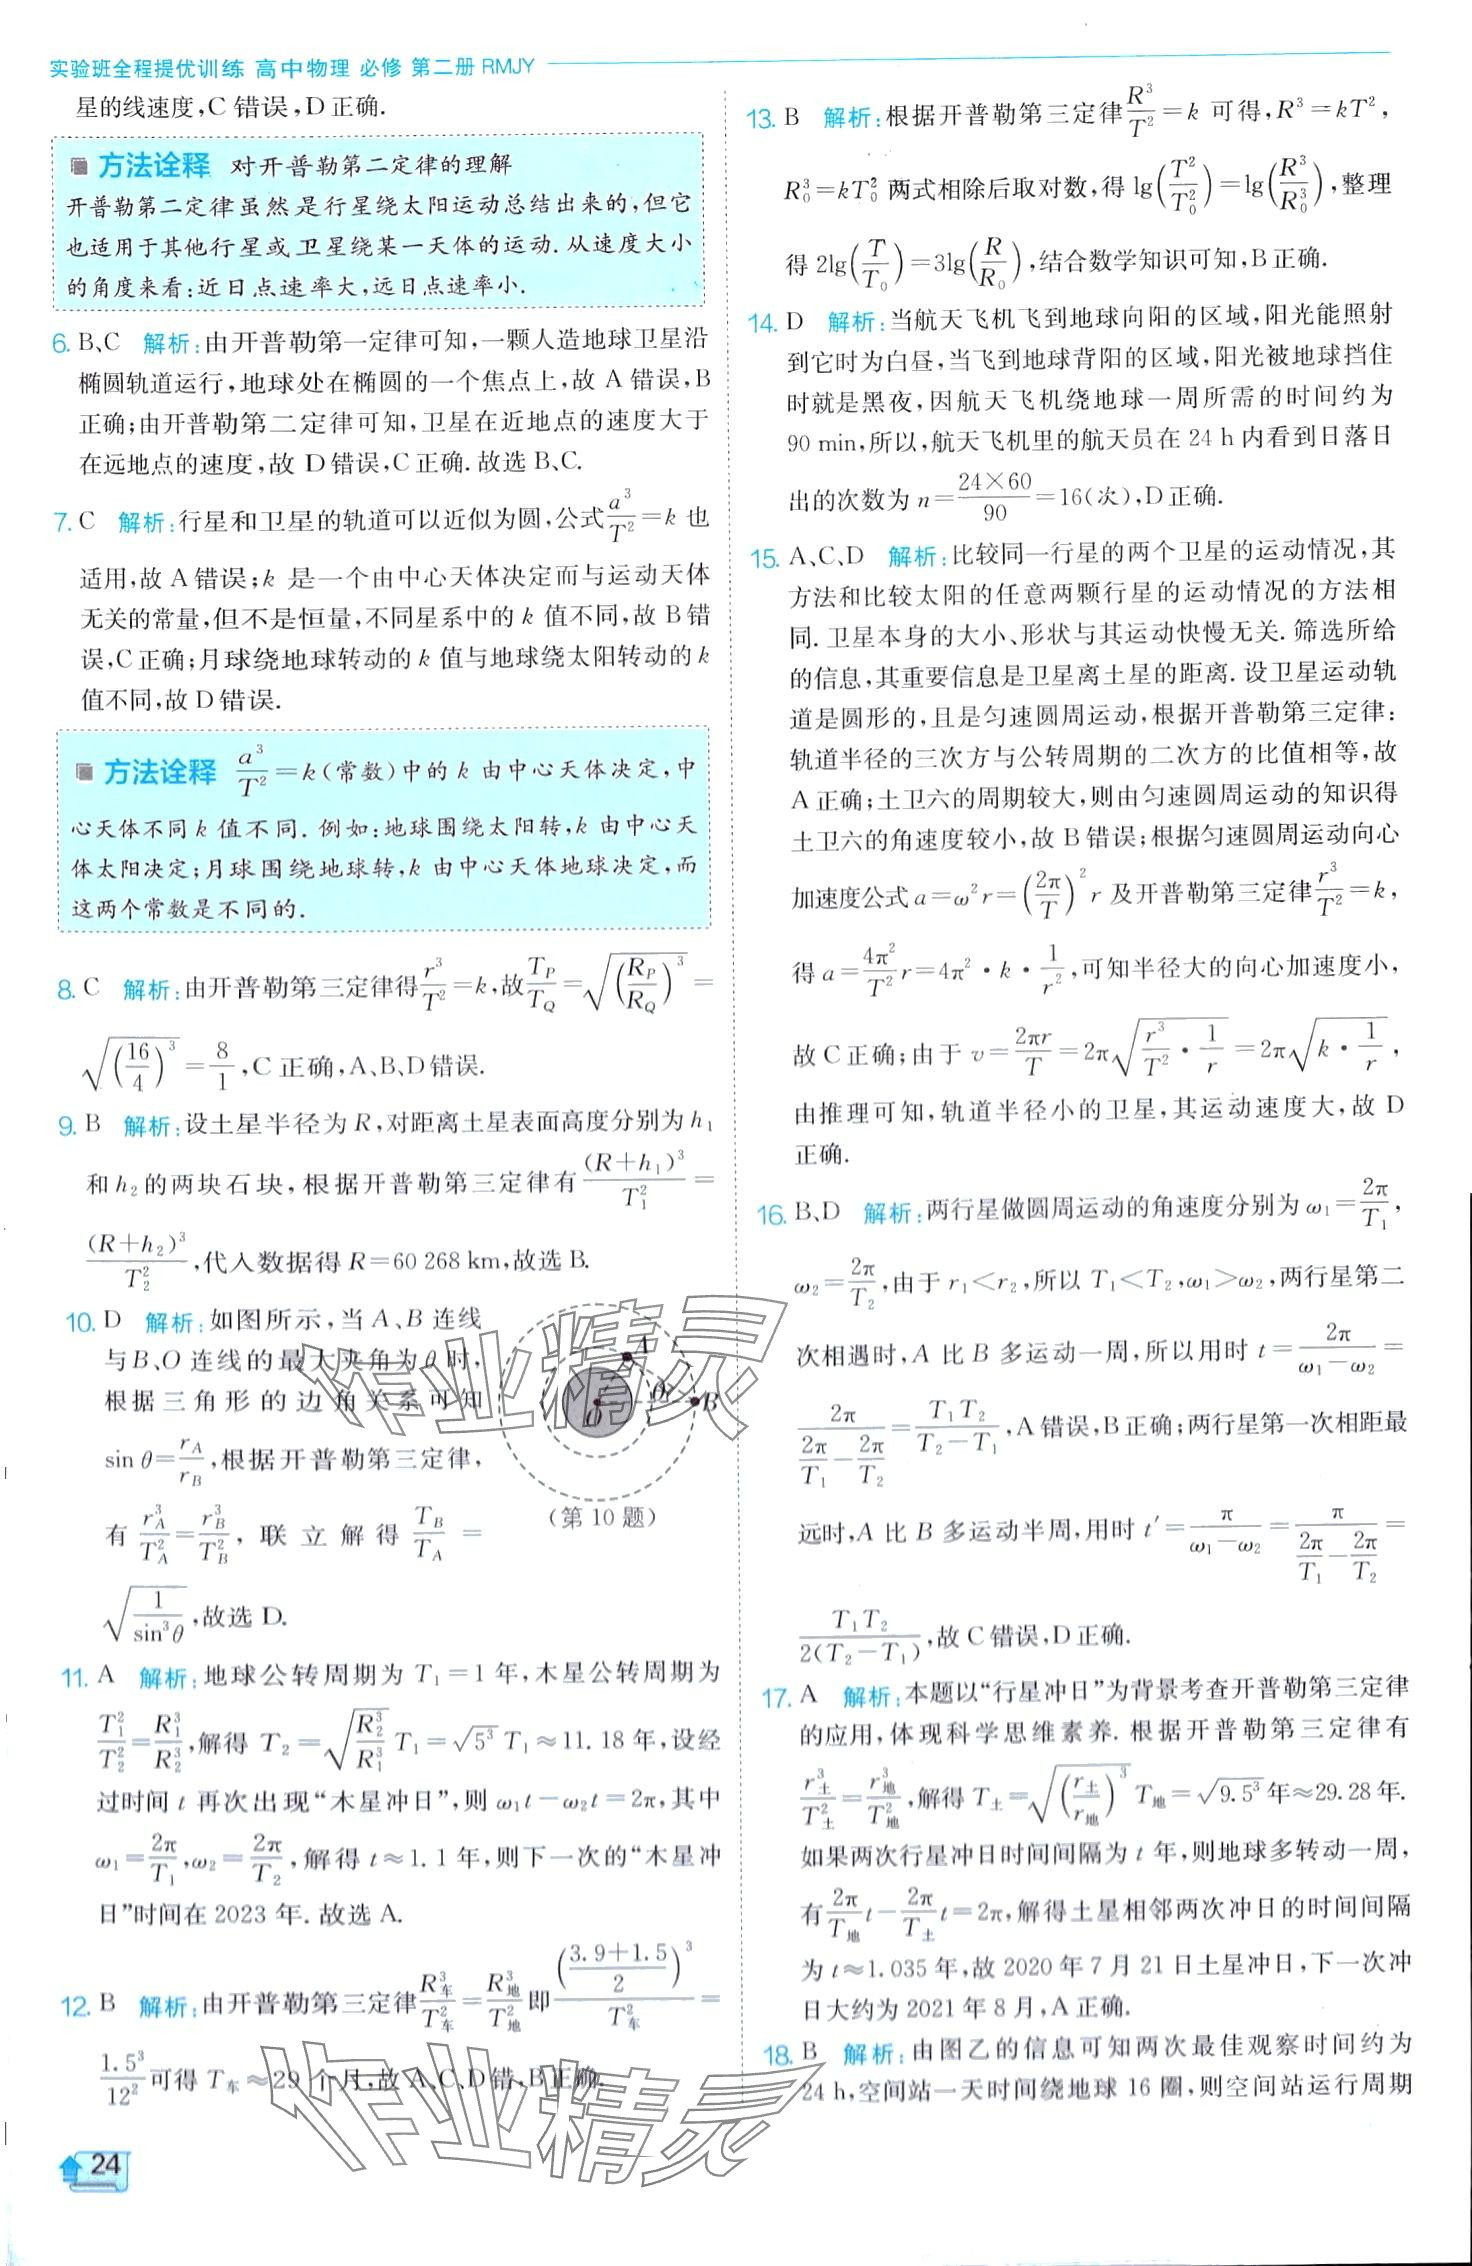 实验班全程提优训练 高中物理 必修 第二册 RMJY
星的线速度,C 错误,D 正确.
方法诠释 对开普勒第二定律的理解
开普勒第二定律虽然是行星绕太阳运动总结出来的,但它
也适用于其他行星或卫星绕某一天体的运动.从速度大小
的角度来看:近日点速率大,远日点速率小.
6. B、C 解析:由开普勒第一定律可知,一颗人造地球卫星沿
椭圆轨道运行,地球处在椭圆的一个焦点上,故 A 错误,B
正确;由开普勒第二定律可知,卫星在近地点的速度大于
在远地点的速度,故 D 错误,C 正确.故选 B、C.
7. C 解析:行星和卫星的轨道可以近似为圆,公式a³/T²=k 也
适用,故 A 错误;k 是一个由中心天体决定而与运动天体
无关的常量,但不是恒量,不同星系中的 k 值不同,故 B 错
误,C 正确;月球绕地球转动的 k 值与地球绕太阳转动的 k
值不同,故 D 错误.
方法诠释 a³/T²=k(常数)中的 k 由中心天体决定,中
心天体不同 k 值不同. 例如:地球围绕太阳转,k 由中心天
体太阳决定;月球围绕地球转,k 由中心天体地球决定,而
这两个常数是不同的.
8. C 解析:由开普勒第三定律得r³/T²=k,故T_P/T_Q=√((R_P/R_Q)³)=
√((16/4)³)=8/1,C 正确,A、B、D 错误.
9. B 解析:设土星半径为 R,对距离土星表面高度分别为 h₁
和 h₂ 的两块石块,根据开普勒第三定律有(R+h₁)³/T₁²=
(R+h₂)³/T₂²,代入数据得 R=60 268 km,故选 B.
10. D 解析:如图所示,当 A、B 连线
与 B、O 连线的最大夹角为 θ 时,
根据三角形的边角关系可知
sin θ=r_A/r_B,根据开普勒第三定律,
有 r_A³/T_A²=r_B³/T_B², 联立解得 T_B/T_A=
√(1/sin³θ),故选 D.
A
θ
O
B
(第 10 题)
11. A 解析:地球公转周期为 T₁=1 年,木星公转周期为
T₁²/T₂²=R₁³/R₂³,解得 T₂=√(R₂³/R₁³) T₁=√(5³) T₁≈11.18 年,设经
过时间 t 再次出现“木星冲日”,则 ω₁t-ω₂t=2π,其中
ω₁=2π/T₁,ω₂=2π/T₂,解得 t≈1.1 年,则下一次的“木星冲
日”时间在 2023 年. 故选 A.
12. B 解析:由开普勒第三定律R车³/T车²=R地³/T地² 即 ((3.9+1.5)/2)³/T车²=
1.5³/12² 可得 T车≈29 个月,故 A、C、D 错,B 正确.
24
13. B 解析:根据开普勒第三定律R³/T²=k 可得,R³=kT²,
R₀³=kT₀² 两式相除后取对数,得 lg(T²/T₀²)=lg(R³/R₀³),整理
得 2lg(T/T₀)=3lg(R/R₀),结合数学知识可知,B 正确.
14. D 解析:当航天飞机飞到地球向阳的区域,阳光能照射
到它时为白昼,当飞到地球背阳的区域,阳光被地球挡住
时就是黑夜,因航天飞机绕地球一周所需的时间约为
90 min,所以,航天飞机里的航天员在 24 h 内看到日落日
出的次数为 n=24×60/90=16(次),D 正确.
15. A、C、D 解析:比较同一行星的两个卫星的运动情况,其
方法和比较太阳的任意两颗行星的运动情况的方法相
同. 卫星本身的大小、形状与其运动快慢无关. 筛选所给
的信息,其重要信息是卫星离土星的距离. 设卫星运动轨
道是圆形的,且是匀速圆周运动,根据开普勒第三定律:
轨道半径的三次方与公转周期的二次方的比值相等,故
A 正确;土卫六的周期较大,则由匀速圆周运动的知识得
土卫六的角速度较小,故 B 错误;根据匀速圆周运动向心
加速度公式 a=ω²r=(2π/T)²r 及开普勒第三定律r³/T²=k,
得 a=4π²/T² r=4π²·k·1/r²,可知半径大的向心加速度小,
故 C 正确;由于 v=2πr/T=2π√(r³/T²·1/r)=2π√(k·1/r),
由推理可知,轨道半径小的卫星,其运动速度大,故 D
正确.
16. B、D 解析:两行星做圆周运动的角速度分别为 ω₁=2π/T₁,
ω₂=2π/T₂,由于 r₁<r₂,所以 T₁<T₂,ω₁>ω₂,两行星第二
次相遇时,A 比 B 多运动一周,所以用时 t=2π/(ω₁-ω₂)=
2π/(2π/T₁-2π/T₂)=T₁T₂/(T₂-T₁),A 错误,B 正确;两行星第一次相距最
远时,A 比 B 多运动半周,用时 t′=π/(ω₁-ω₂)=π/(2π/T₁-2π/T₂)=
T₁T₂/2(T₂-T₁),故 C 错误,D 正确.
17. A 解析:本题以“行星冲日”为背景考查开普勒第三定律
的应用,体现科学思维素养. 根据开普勒第三定律有
r土³/T土²=r地³/T地²,解得 T土=√((r土/r地)³) T地=√(9.5³) 年≈29.28 年.
如果两次行星冲日时间间隔为 t 年,则地球多转动一周,
有2π/T地 t-2π/T土 t=2π,解得土星相邻两次冲日的时间间隔
为 t≈1.035 年,故 2020 年 7 月 21 日土星冲日,下一次冲
日大约为 2021 年 8 月,A 正确.
18. B 解析:由图乙的信息可知两次最佳观察时间约为
24 h,空间站一天时间绕地球 16 圈,则空间站运行周期
作业精灵
作业精灵